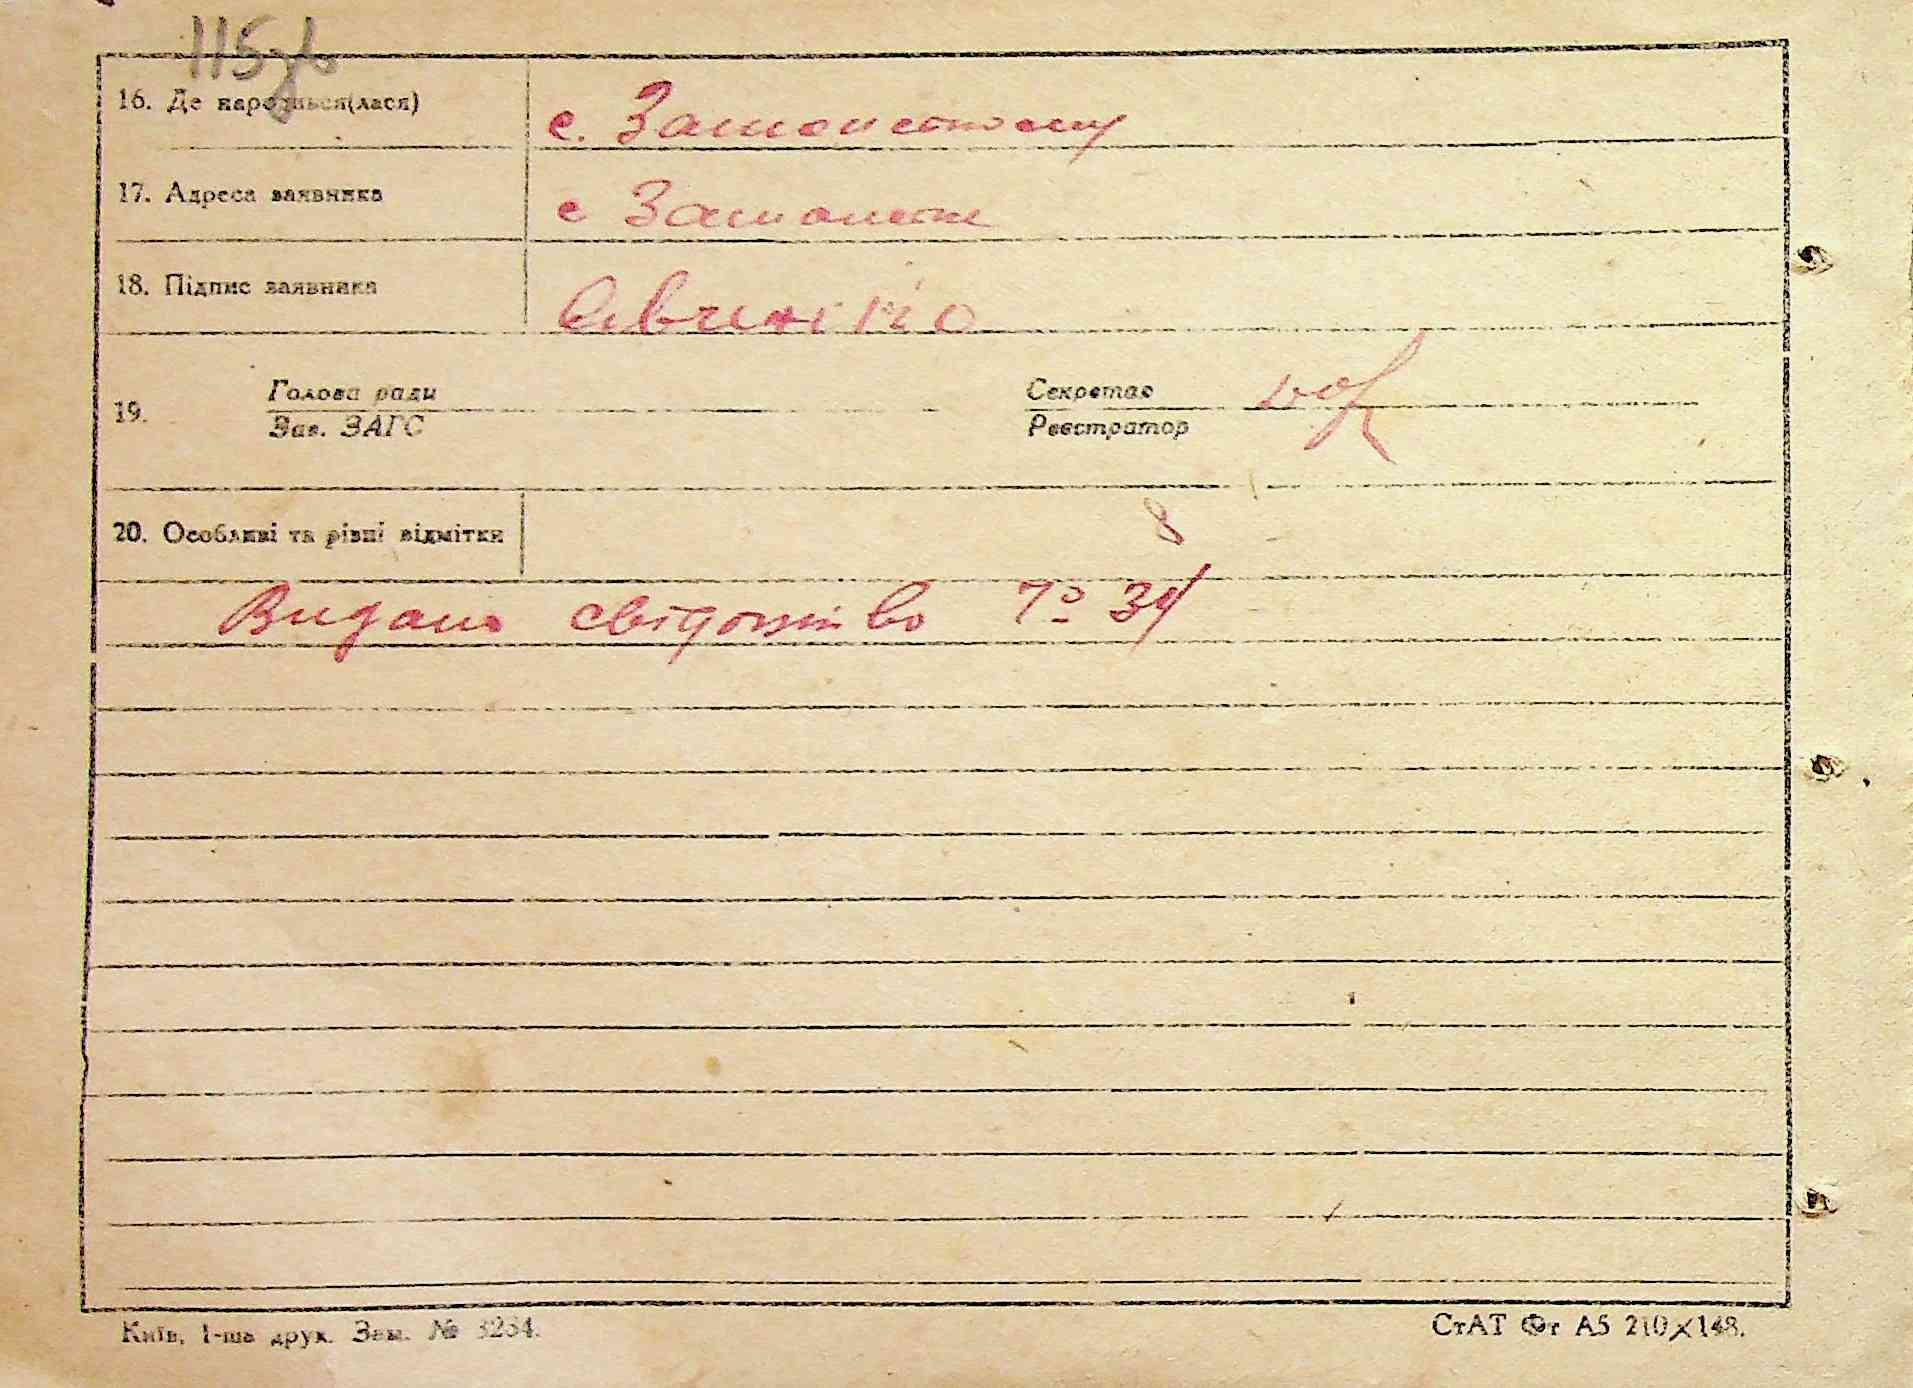 115зв
16. Де народивься(лася) с. Замостському
17. Адреса заявника с Замостє
18. Підпис заявника Савченко
19. Голова ради Секретар
Зав. ЗАГС Реєстратор
8
20. Особливі та різні відмітки
Видано свідотство № 34
Київ, 1-ша друк. Зам. № 3234.
СтАТ Фт А5 210×148.